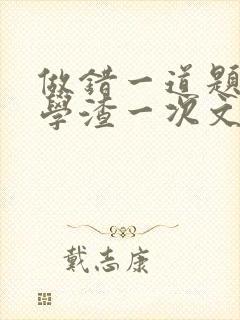 做錯一道題
學渣一次文
戴志康